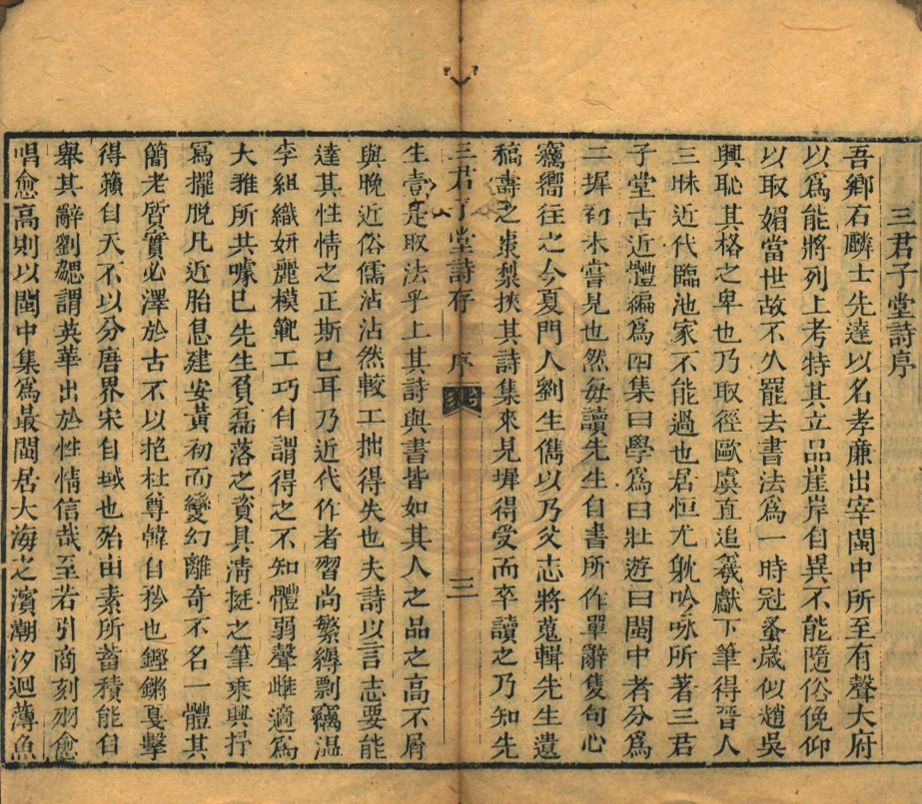 三君子堂詩序
吾鄉石麟士先達以名孝廉出宰閩中所至有聲大府
以爲能將列上考特其立品崖岸自異不能隨俗俛仰
以取媚當世故不久罷去書法爲一時冠蚤歲似趙吳
興恥其格之卑也乃取徑歐虞直追羲獻下筆得晉人
三昧近代臨池家不能過也居恒尤躭吟咏所著三君
子堂古近體編爲四集曰學爲曰壯遊曰閩中者分爲
二墀初未嘗見也然每讀先生自書所作單辭隻句心
竊嚮往之今夏門人劉生儁以乃父志將蒐輯先生遺
稿壽之棗梨挾其詩集來見墀得受而卒讀之乃知先
三君子堂詩存 序 三
生壹是取法乎上其詩與書皆如其人之品之高不屑
與晚近俗儒沾沾然較工拙得失也夫詩以言志要能
達其性情之正斯已耳乃近代作者習尚繁縟剽竊溫
李組織妍麗模範工巧自謂得之不知體弱聲雌適爲
大雅所共噱已先生負磊落之資具清挺之筆乘興抒
寫擺脫凡近胎息建安黃初而變幻離奇不名一體其
簡老質實必澤於古不以挹杜尊韓自矜也鏗鏘戛擊
得籟自天不以分唐界宋自域也殆由素所蓄積能自
舉其辭劉勰謂英華出於性情信哉至若引商刻羽愈
唱愈高則以閩中集爲最閩居大海之濱潮汐迴薄魚